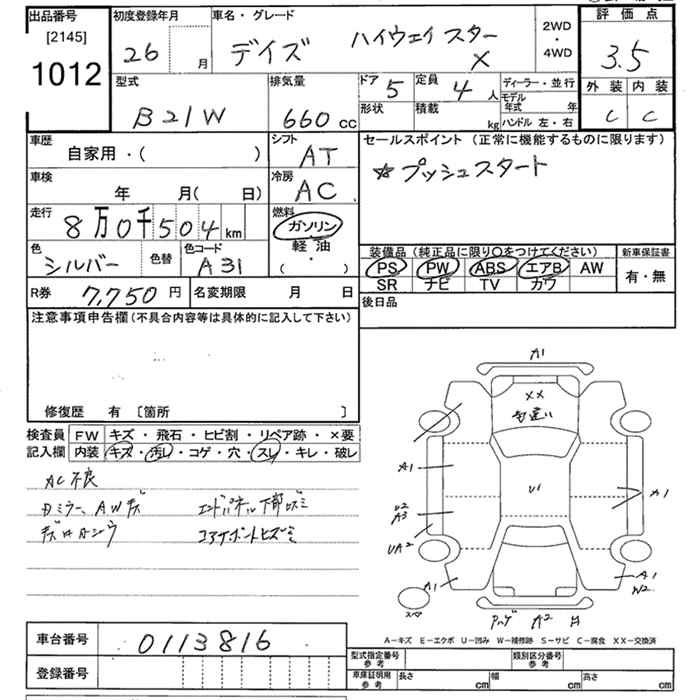 出品番号 初度登録年月 車名・グレード 2WD・4WD 評価点
[2145]
1012
26 月 デイズ ハイウェイスター X 3.5
型式 排気量 ドア 5 定員 4人 ディーラー・並行 外装 内装
B21W 660cc 形状 積載 kg モデル年式 年 ハンドル 左・右 C C
車歴 シフト セールスポイント(正常に機能するものに限ります)
自家用・( ) AT ☆プッシュスタート
車検 冷房
年 月( 日) AC
走行 燃料
8万0千504km ガソリン
軽油
( ・ )
色 シルバー 色替 色コード A31
装備品(純正品に限り〇をつけてください) 新車保証書
PS PW ABS エアB AW 有・無
SR ナビ TV カワ
R券 7,750円 名変期限 月 日
後日品
注意事項申告欄(不具合内容等は具体的に記入して下さい)
修復歴 有 [箇所 ]
検査員 FW キズ・飛石・ヒビ割・リペア跡・×要
記入欄 内装 キズ・汚レ・コゲ・穴・スレ・キレ・破レ
AC不良
エンドパネル下部ヒズミ
コアサポートヒズミ
A1
XX
色違い
A1
U1
A1
U2
A3
UA2
A1
A1
W2
A2
A-キズ E-エクボ U-凹み W-補修跡 S-サビ C-腐食 XX-交換済
車台番号 0113816
型式指定番号 参考 類別区分番号 参考
登録番号
車庫証明用 参考 長さ cm 幅 cm 高さ cm